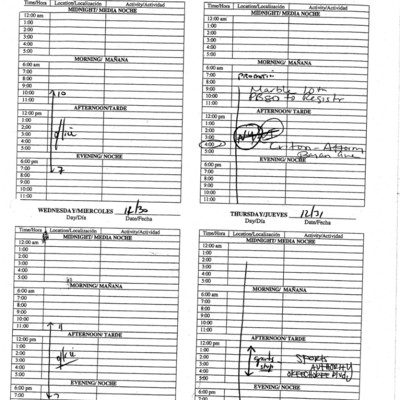 Time/Hora Location/Localización Activity/Actividad
MIDNIGHT/ MEDIA NOCHE
12:00 am
1:00
2:00
3:00
4:00
5:00
MORNING/ MAÑANA
6:00 am
7:00
8:00
9:00
10:00 10
11:00
AFTERNOON/TARDE
12:00 pm
1:00
2:00
3:00
4:00
5:00
EVENING/ NOCHE
6:00 pm
7:00 7
8:00
9:00
10:00
11:00
WEDNESDAY/MIERCOLES 12/30
Day/Día Date/Fecha
Time/Hora Location/Localización Activity/Actividad
MIDNIGHT/ MEDIA NOCHE
12:00 am
1:00
2:00
3:00
4:00
5:00
MORNING/ MAÑANA
6:00 am
7:00
8:00
9:00
10:00
11:00
AFTERNOON/TARDE
12:00 pm
1:00
2:00
3:00
4:00
5:00
EVENING/ NOCHE
6:00 pm
7:00
8:00
9:00
10:00
11:00
THURSDAY/JUEVES 12/31
Day/Día Date/Fecha
Time/Hora Location/Localización Activity/Actividad
12:00 am
MIDNIGHT/ MEDIA NOCHE
1:00
2:00
3:00
4:00
5:00
MORNING/ MAÑANA
6:00 am
7:00
8:00
9:00
10:00
11:00
AFTERNOON/ TARDE
12:00 pm
1:00
2:00
3:00
4:00
5:00
EVENING/ NOCHE
6:00 pm
7:00
Time/Hora Location/Localización Activity/Actividad
MIDNIGHT/ MEDIA NOCHE
12:00 am
1:00
2:00
3:00
4:00
5:00
MORNING/ MAÑANA
6:00 am
7:00
8:00
9:00
10:00
11:00
AFTERNOON/ TARDE
12:00 pm
1:00
2:00 SPORTS
3:00 shop AUTHORITY
4:00
5:00
EVENING/ NOCHE
6:00 pm
7:00